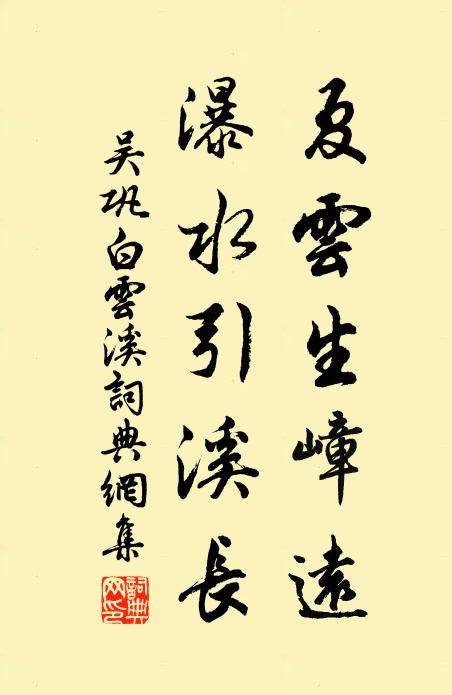 夏雲生嶂遠
瀑水引溪長
吴巩白雲溪詞典網集
詞典
网印